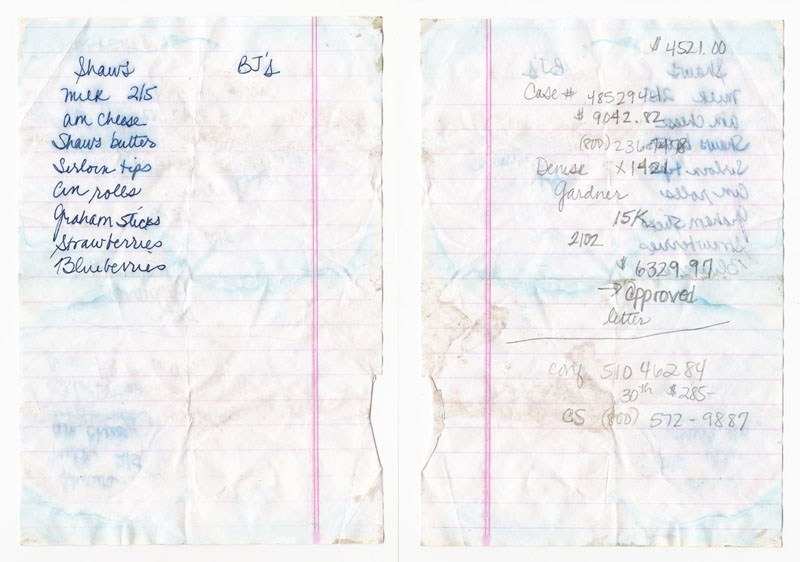 Shaw's BJ's
milk 2/5
am cheese
Shaws butter
Sirloin tips
Cin rolls
Graham Sticks
Strawberries
Blueberries
$ 4521.00
Case #
$ 9042.82
(800)
Denise x1421
Gardner
15K
2102
$ 6329.97
→ approved
letter
conf 510 462 84
30th $285-
CS (800) 572-9887